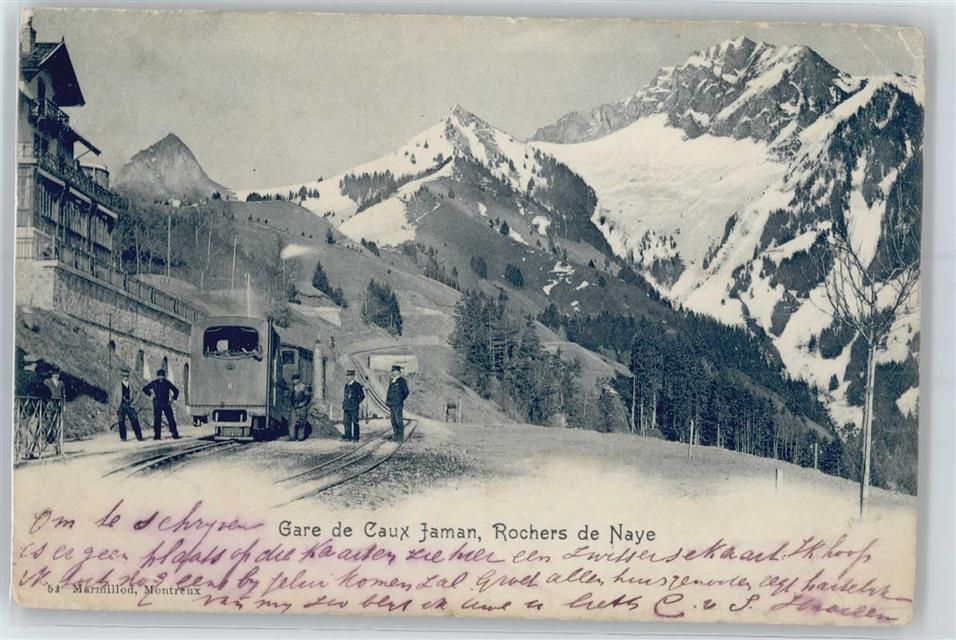 6
Gare de Caux Jaman, Rochers de Naye
Om te schrijven
is er geen plaats op die kaarten zie hier een zwitserse kaart. Ik hoop
dat ik nog eens bij jelui komen zal Groet allen huisgenooten
van mij zoo ben ik uwe C. v S.
52 Marmillod, Montreux